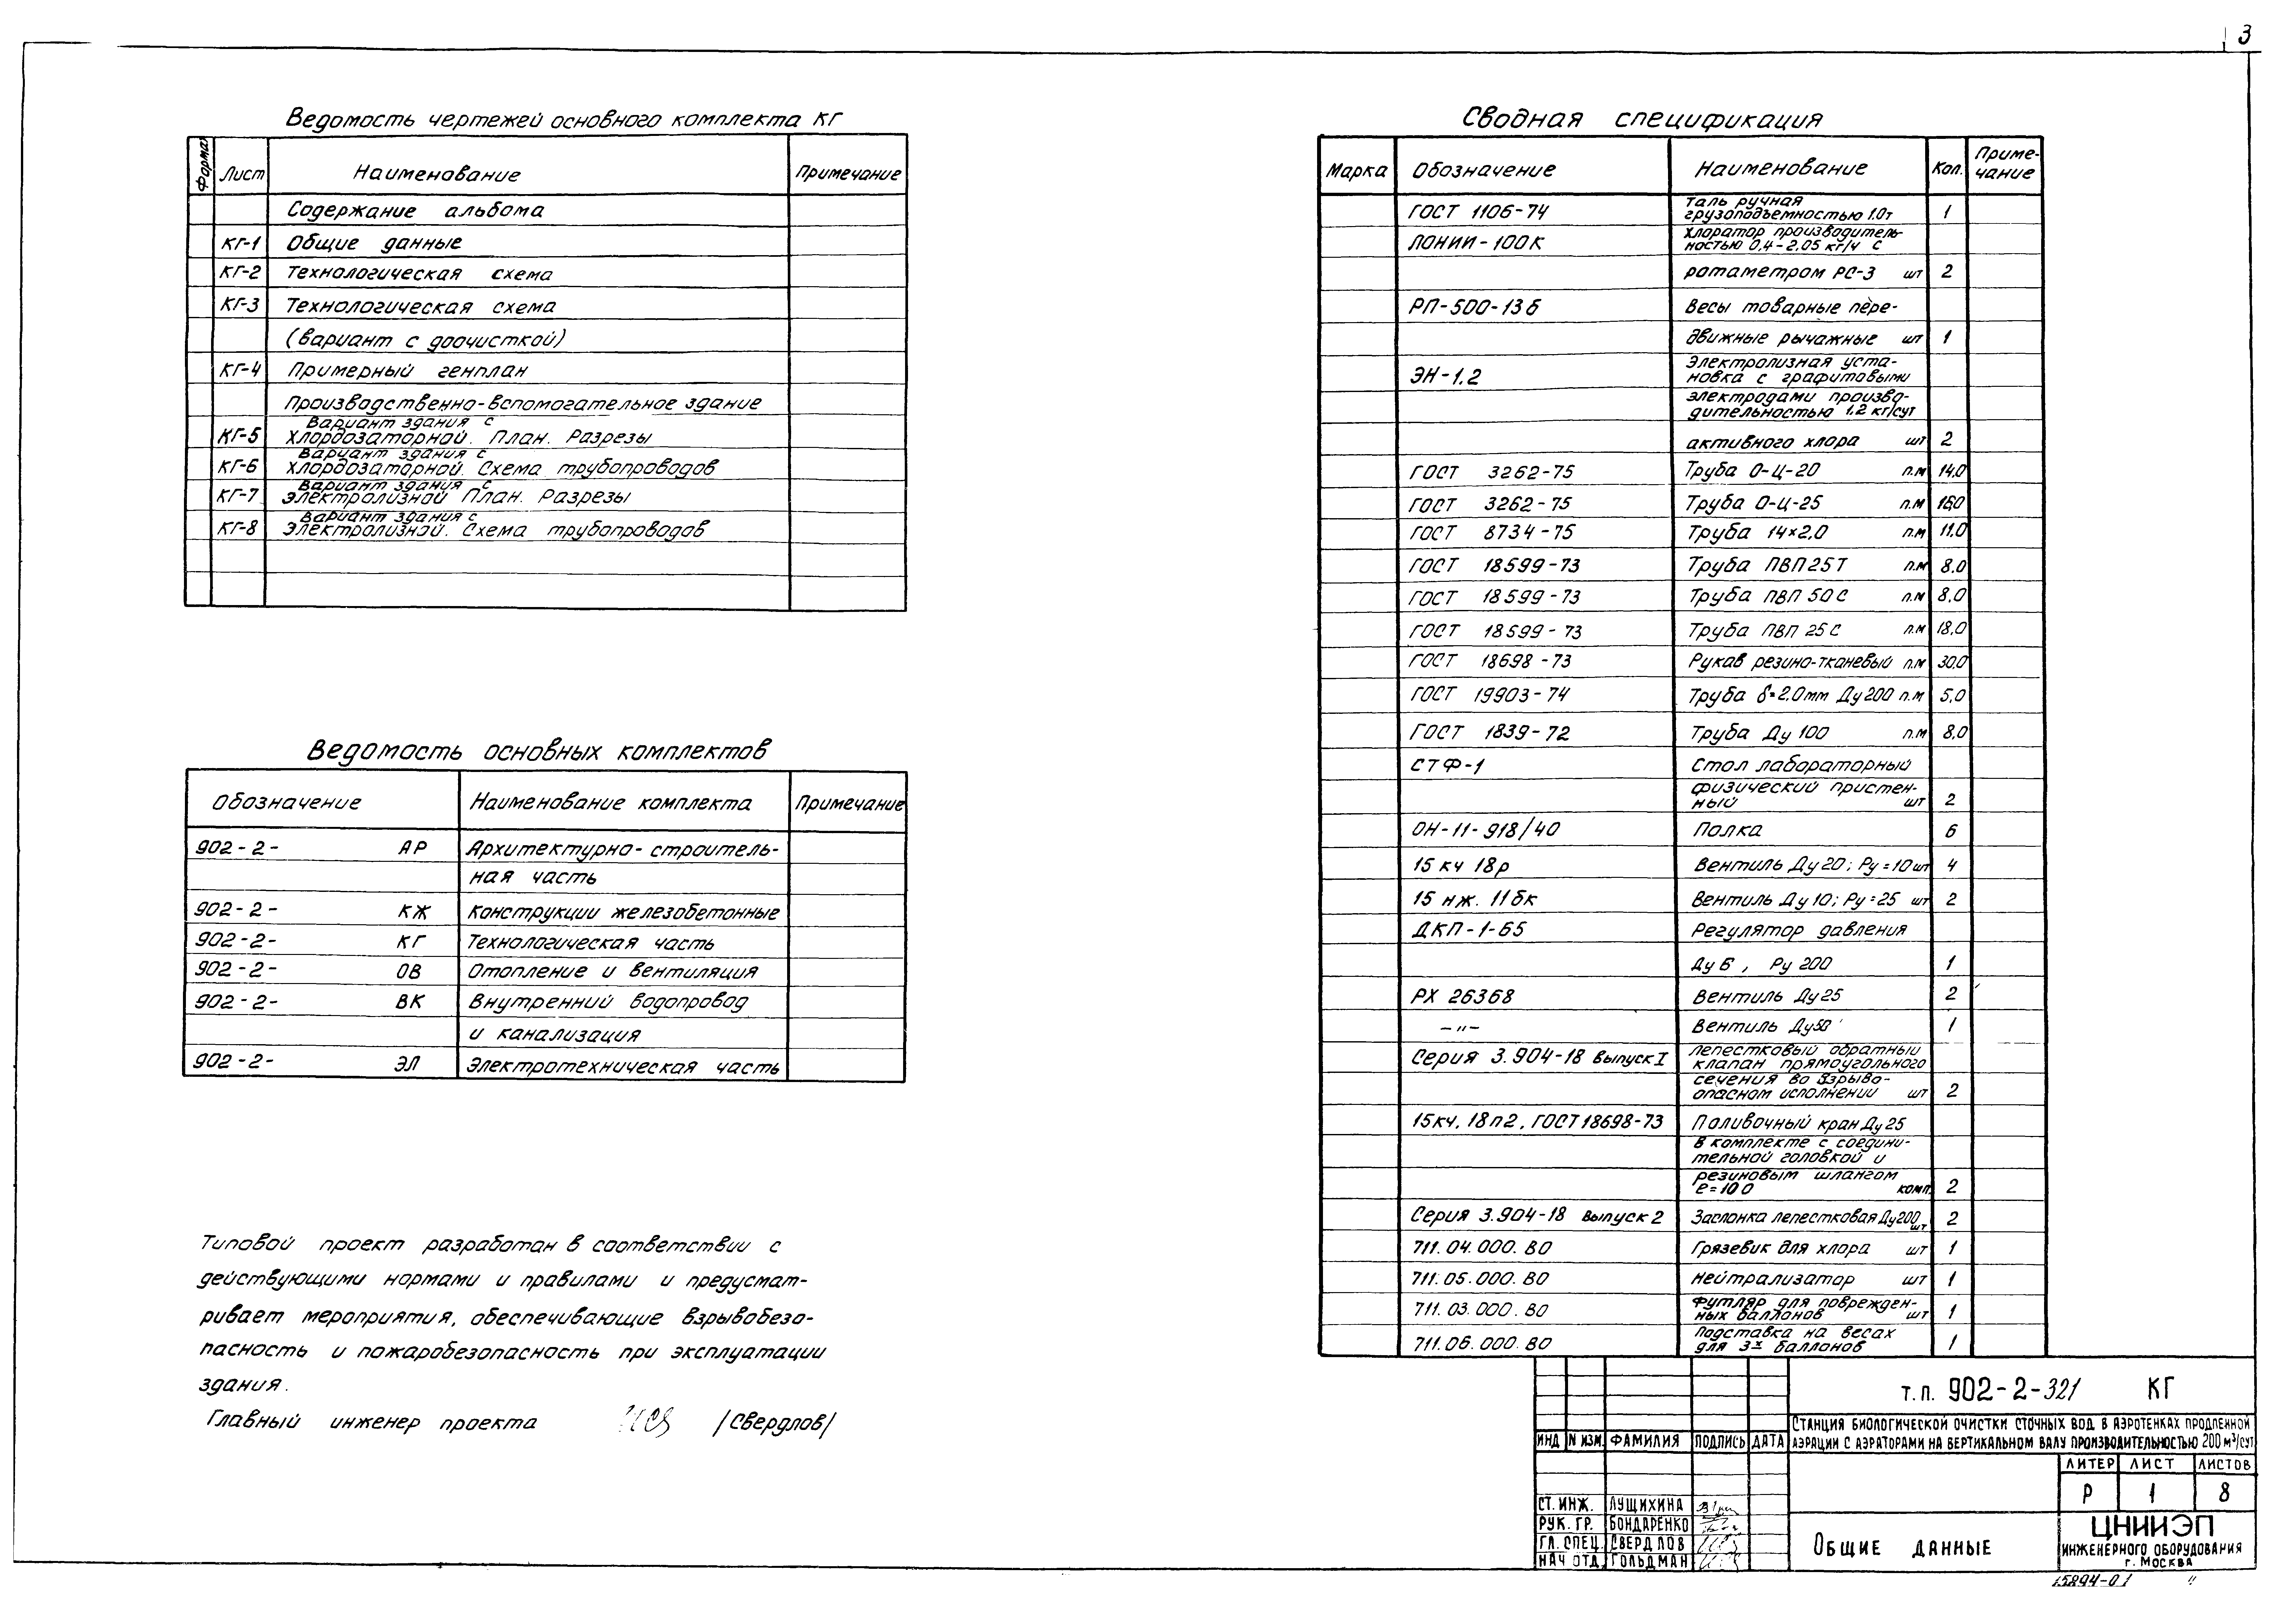 3
Ведомость чертежей основного комплекта КГ
Формат Лист Наименование Примечание
Содержание альбома
КГ-1 Общие данные
КГ-2 Технологическая схема
КГ-3 Технологическая схема
(вариант с доочисткой)
КГ-4 Примерный генплан
Производственно-вспомогательное здание
Вариант здания с
КГ-5 хлордозаторной. План. Разрезы
Вариант здания с
КГ-6 хлордозаторной. Схема трубопроводов
Вариант здания с
КГ-7 электролизной План. Разрезы
Вариант здания с
КГ-8 электролизной. Схема трубопроводов
Ведомость основных комплектов
Обозначение Наименование комплекта Примечание
902-2- АР Архитектурно-строитель-
ная часть
902-2- КЖ Конструкции железобетонные
902-2- КГ Технологическая часть
902-2- ОВ Отопление и вентиляция
902-2- ВК Внутренний водопровод
и канализация
902-2- ЭЛ Электротехническая часть
Типовой проект разработан в соответствии с
действующими нормами и правилами и предусмат-
ривает мероприятия, обеспечивающие взрывобезо-
пасность и пожаробезопасность при эксплуатации
здания.
Главный инженер проекта /Свердлов/
Сводная спецификация
Марка Обозначение Наименование Кол. Приме-
чание
ГОСТ 1106-74 таль ручная
грузоподъемностью 1.0т 1
ЛОНИИ-100К хлоратор производитель-
ностью 0,4-2.05 кг/ч с
ротаметром РС-3 шт 2
РП-500-13б Весы товарные пере-
движные рычажные шт 1
ЭН-1.2 Электролизная уста-
новка с графитовыми
электродами произво-
дительностью 1.2 кг/сут
активного хлора шт 2
ГОСТ 3262-75 Труба О-Ц-20 п.м 14,0
ГОСТ 3262-75 Труба О-Ц-25 п.м
ГОСТ 8734-75 Труба 14×2,0 п.м 11,0
ГОСТ 18599-73 Труба ПВП 25Т п.м 8,0
ГОСТ 18599-73 Труба ПВП 50С п.м 8,0
ГОСТ 18599-73 Труба ПВП 25С п.м 18,0
ГОСТ 18698-73 Рукав резино-тканевый п.м 30.0
ГОСТ 19903-74 Труба δ=2,0мм Ду 200 п.м 5,0
ГОСТ 1839-72 Труба Ду 100 п.м 8,0
СТФ-1 Стол лабораторный
физический пристен-
ный шт 2
ОН-11-918/40 Полка 6
15 кч 18р Вентиль Ду 20; Ру=10 шт 4
15 нж. 11бк Вентиль Ду 10; Ру=25 шт 2
ДКП-1-65 Регулятор давления
Ду 6, Ру 200 1
РХ 26368 Вентиль Ду 25 2
-"- Вентиль Ду50 1
Серия 3.904-18 Выпуск I лепестковый обратный
клапан прямоугольного
сечения во взрыво-
опасном исполнении шт 2
15кч, 18п2, ГОСТ 18698-73 Поливочный кран Ду 25
в комплекте с соедини-
тельной головкой и
резиновым шлангом
e=10 0 комп. 2
Серия 3.904-18 Выпуск 2 Заслонка лепестковая Ду200 шт 2
711.04.000.ВО Грязевик для хлора шт 1
711.05.000.ВО Нейтрализатор шт 1
711.03.000.ВО Футляр для поврежден-
ных баллонов шт 1
711.06.000.ВО Подставка на весах
для 3х баллонов 1
т.п. 902-2-321 КГ
Станция биологической очистки сточных вод в аэротенках продленной
аэрации с аэраторами на вертикальном валу производительностью 200 м³/сут
ИНД N ИЗМ. ФАМИЛИЯ ПОДПИСЬ ДАТА
ЛИТЕР ЛИСТ ЛИСТОВ
Р 1 8
СТ. ИНЖ. ЛУЩИХИНА
РУК. ГР. БОНДАРЕНКО
ГЛ. СПЕЦ. СВЕРДЛОВ
НАЧ ОТД. ГОЛЬДМАН
Общие данные
ЦНИИЭП
ИНЖЕНЕРНОГО ОБОРУДОВАНИЯ
г. Москва
15894-01